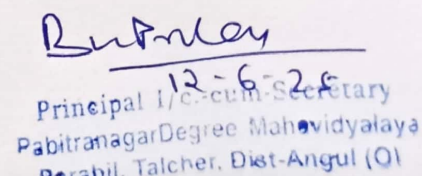 12-6-25
Principal I/c.-cum-Secretary
PabitranagarDegree Mahavidyalaya
Porabil, Talcher, Dist-Angul (O)